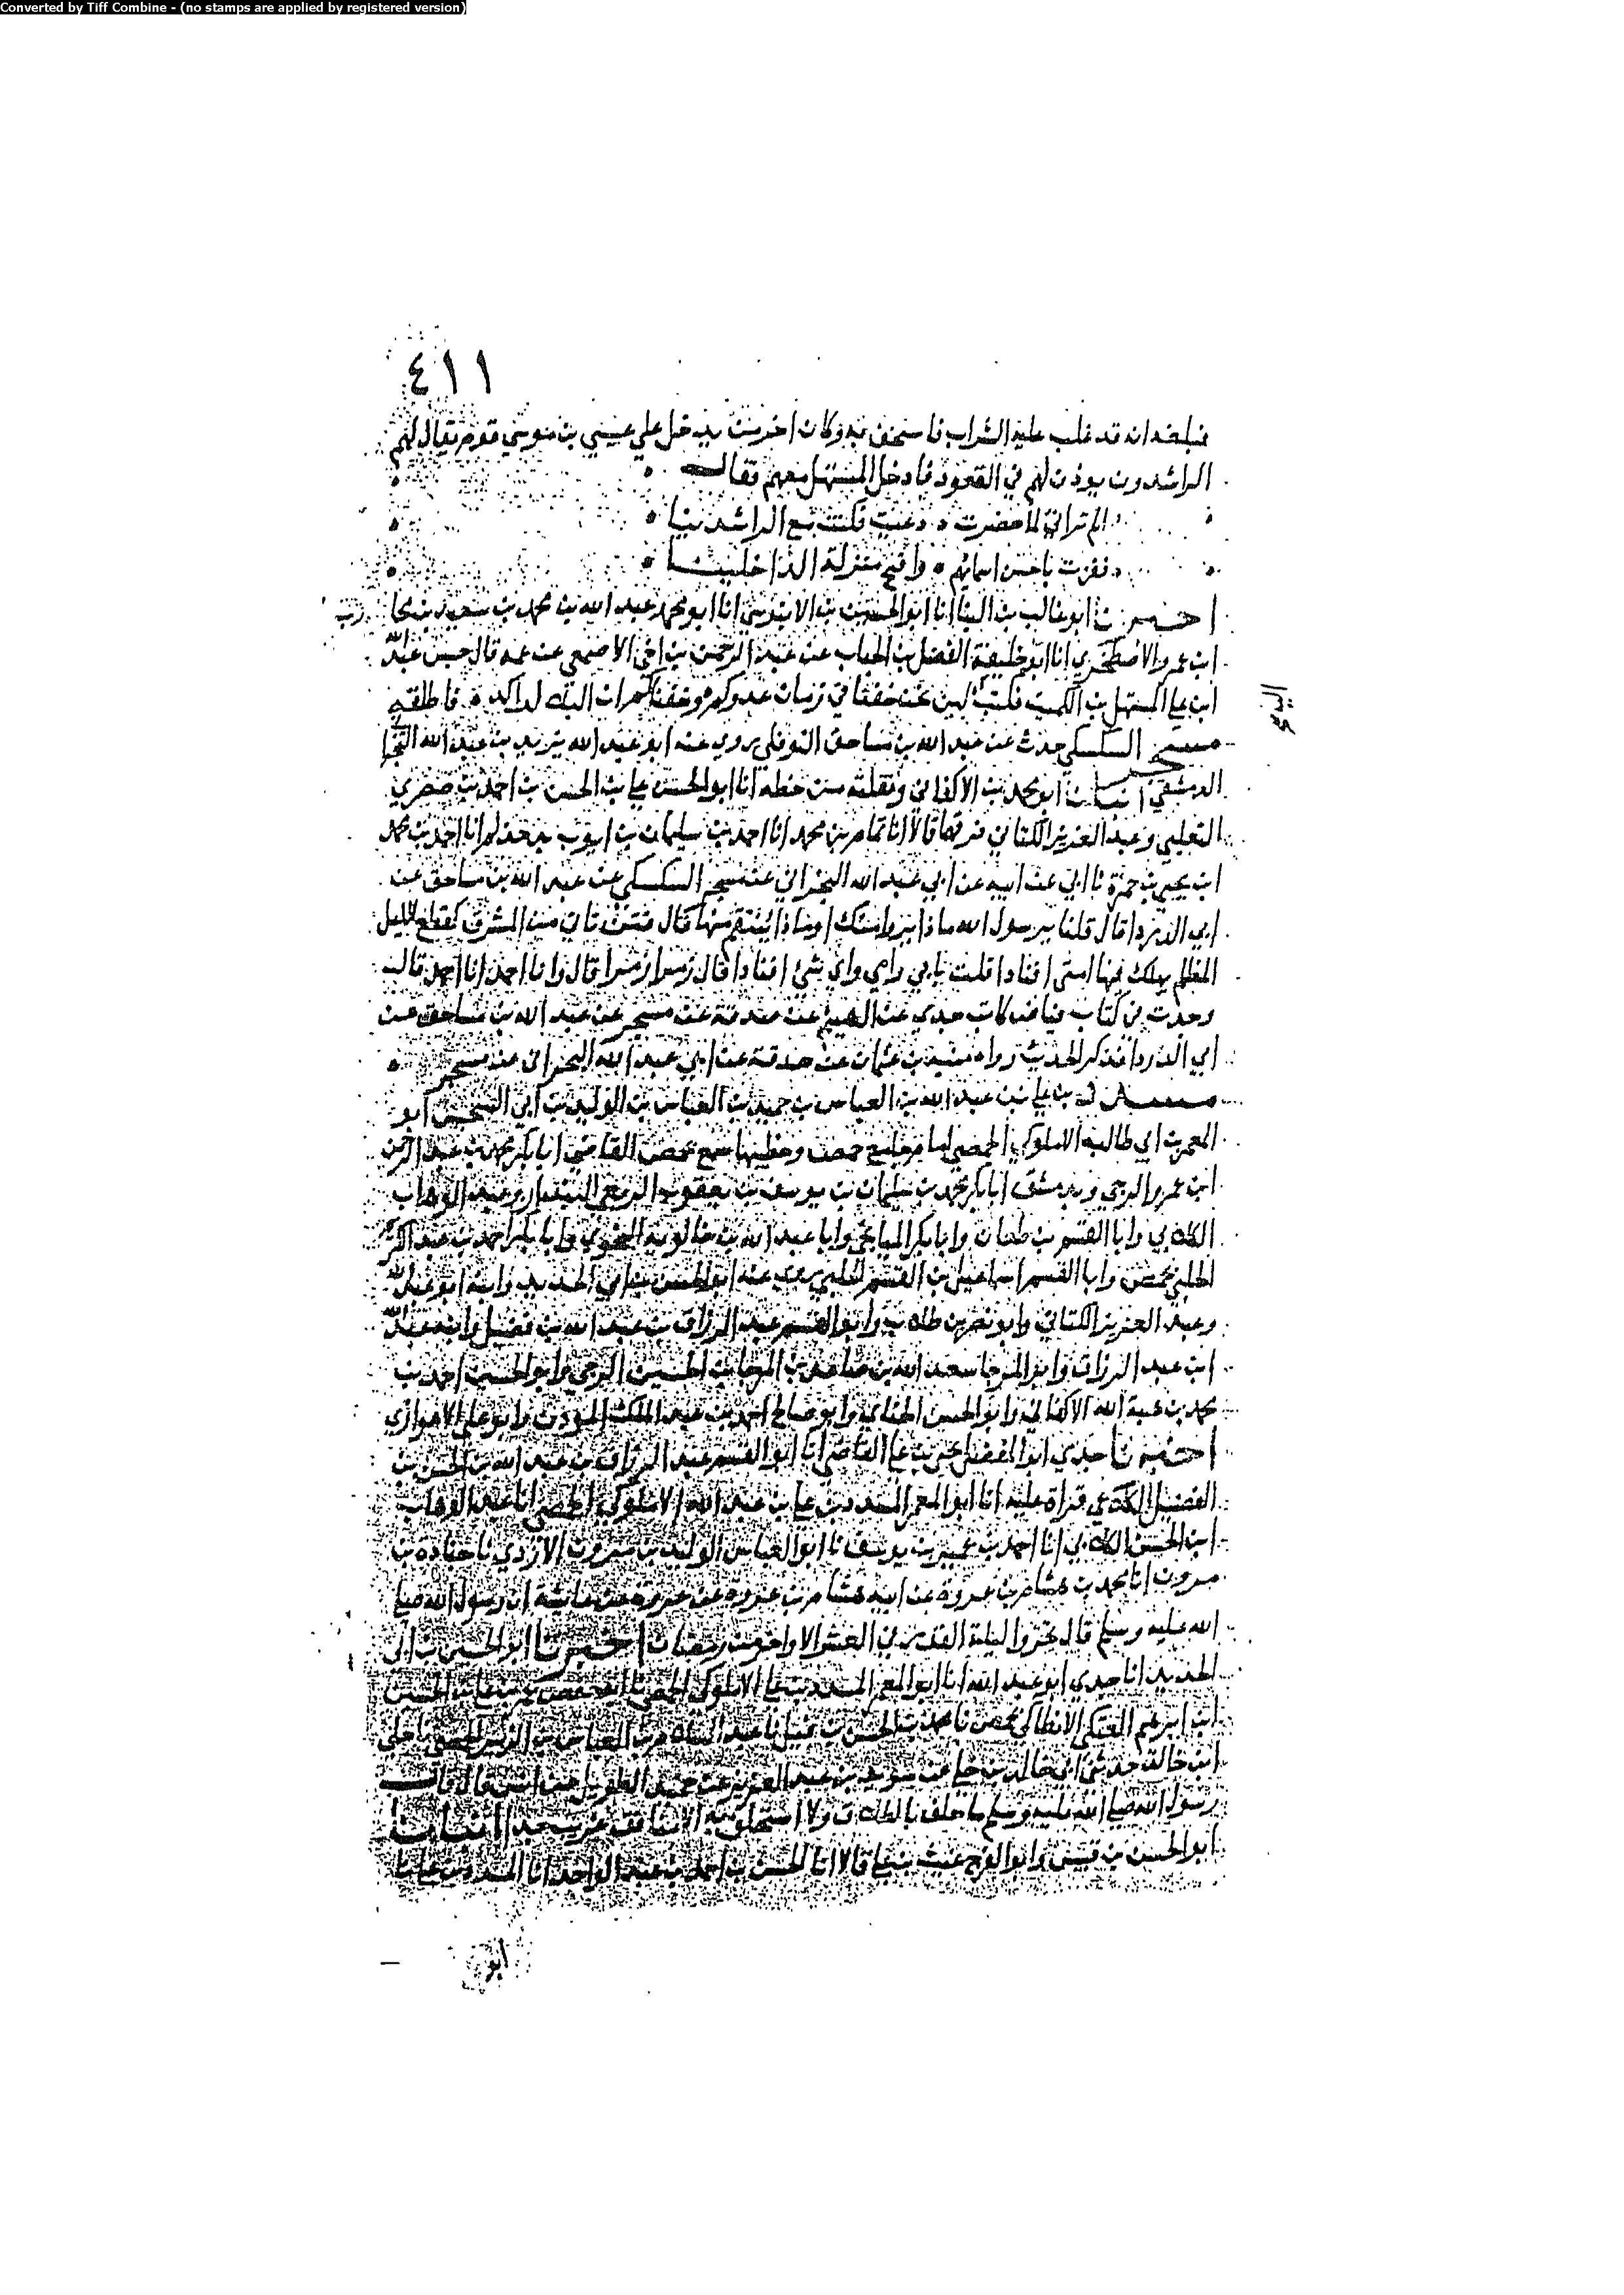 Converted by Tiff Combine - (no stamps are applied by registered version)
٤١١
فبلغه انه قد غلب عليه الشراب فاستخف به وكان اخر من يدخل علي عيسي بن موسي قوم يقال لهم
الراشدون يوذن لهم في القعود فادخل المستهل معهم فقال
الم تراني لما حضرت دعيت فكنت مع الراشدينا
ففزت باحسن اسمائهم واقبح منزلة الداخلينا
اخبرنا ابو غالب بن البنا انا ابو الحسين بن الابنوسي انا ابو محمد عبد الله بن محمد بن سعيد بن محارب
ابن عمرو الاصطخري انا ابو خليفة الفضل بن الحباب عن عبد الرحمن بن اخي الاصمعي عن عمه قال حبس عبد الله
ابن علي المستهل بن الكميت فكتب لين نحن خفنا في زمان عدوكم وخفناكم ان البلا لراكد فاطلقه
مسيح السكسكي حدث عن عبد الله بن مساحق النوفلي يروي عنه ابو عبد الله يزيد بن عبد الله النجرا
الدمشقي انبانا ابو محمد بن الاكفاني ونقلته من خطه انا ابو الحسن علي بن الحسن بن احمد بن صصري
التغلبي وعبد العزيز الكتاني فرقهما قالا انا تمام بن محمد انا احمد بن سليمان بن ايوب بن حذلم انا احمد بن محمد
ابن يحيي بن حمزة نا ابي عن ابيه عن ابي عبد الله النجراني عن مسيح السكسكي عن عبد الله بن مساحق عن
ابي الدردا قال قلنا يرسول الله ماذا امتك او ماذا ينتقم منها قال فتن تاتي من المشرق كقطع الليل
المظلم يهلك فيها امتي افنادا قلت بابي وامي واي شي افنادا قال زمرا زمرا قال وانا احمد انا احمد قال
وجدت في كتاب جدي عن الهيثم عن صدقة عن مسيح عن عبد الله بن مساحق عن
ابي الدردا فذكر الحديث رواه بن عثمان عن صدقة عن ابي عبد الله النجراني عن مسيح
مسدد بن علي بن عبد الله بن العباس بن حميد بن العباس بن الوليد بن ابي السجيس ابو
المعمر بن ابي طالب الاملوكي الحمصي امام جامع حمص وخطيبها سمع بحمص القاضي ابا بكر محمد بن عبد الرحمن
ابن عمرو الرحبي وبدمشق ابا بكر محمد بن سليمان بن يوسف بن يعقوب الربعي البندار وعبد الوهاب
الكلابي وابا القسم بن طعان وابا بكر الميانجي وابا عبد الله بن خالويه النحوي وابا بكر احمد بن عبد الكريم
الحلبي بحمص وابا القسم اسماعيل بن القسم الحلبي روي عنه ابو الحسن بن ابي الحديد وابنه ابو عبد الله
وعبد العزيز الكتاني وابو نصر بن طلاب وابو القسم عبد الرزاق بن عبد الله بن فضيل وابنه عبد الله
ابن عبد الرزاق وابو المرجا سعد الله بن صاعد بن المرجا بن الحسين الرحبي وابو الحسين احمد بن
محمد بن هبة الله الاكفاني وابو الحسن الحنايي وابو صالح احمد بن عبد الملك الموذن وابو علي الاهوازي
اخبرنا جدي ابو المفضل يحيي بن علي القاضي انا ابو القسم عبد الرزاق بن عبد الله بن الحسن بن
الفضيل الكلاعي قراة عليه انا ابو المعمر المسدد بن علي بن عبد الله الاملوكي الحمصي انا عبد الوهاب
ابن الحسن الكلابي انا احمد بن عمير بن يوسف نا ابو العباس الوليد بن مروان الازدي نا جنادة بن
مروان انا محمد بن هشام بن عروة عن ابيه هشام بن عروة عن عروة عن عايشة ان رسول الله صلي
الله عليه وسلم قال تحروا ليلة القدر في العشر الاواخر من رمضان اخبرنا ابو الحسين بن ابي
الحديد انا جدي ابو عبد الله انا ابو المعمر المسدد بن علي الاملوكي الحمصي نا ابو حفص عمر بن علي بن الحسين
ابن ابرهيم العتكي الانطاكي بحمص نا محمد بن الحسن بن نا عبد السلام بن العباس بن الزبير الحمصي نا خلي
ابن خالد حدثني ابي خالد بن خلي عن سويد بن عبد العزيز عن حميد الطويل عن انس قال قال
رسول الله صلي الله عليه وسلم ما حلف بالطلاق ولا استحلف به الا منافق غريب جدا انبانا
ابو الحسن بن قبيس وابو الفرج غيث بن علي قالا انا الحسن بن احمد بن عبد الواحد انا المسدد بن علي نا
ابو